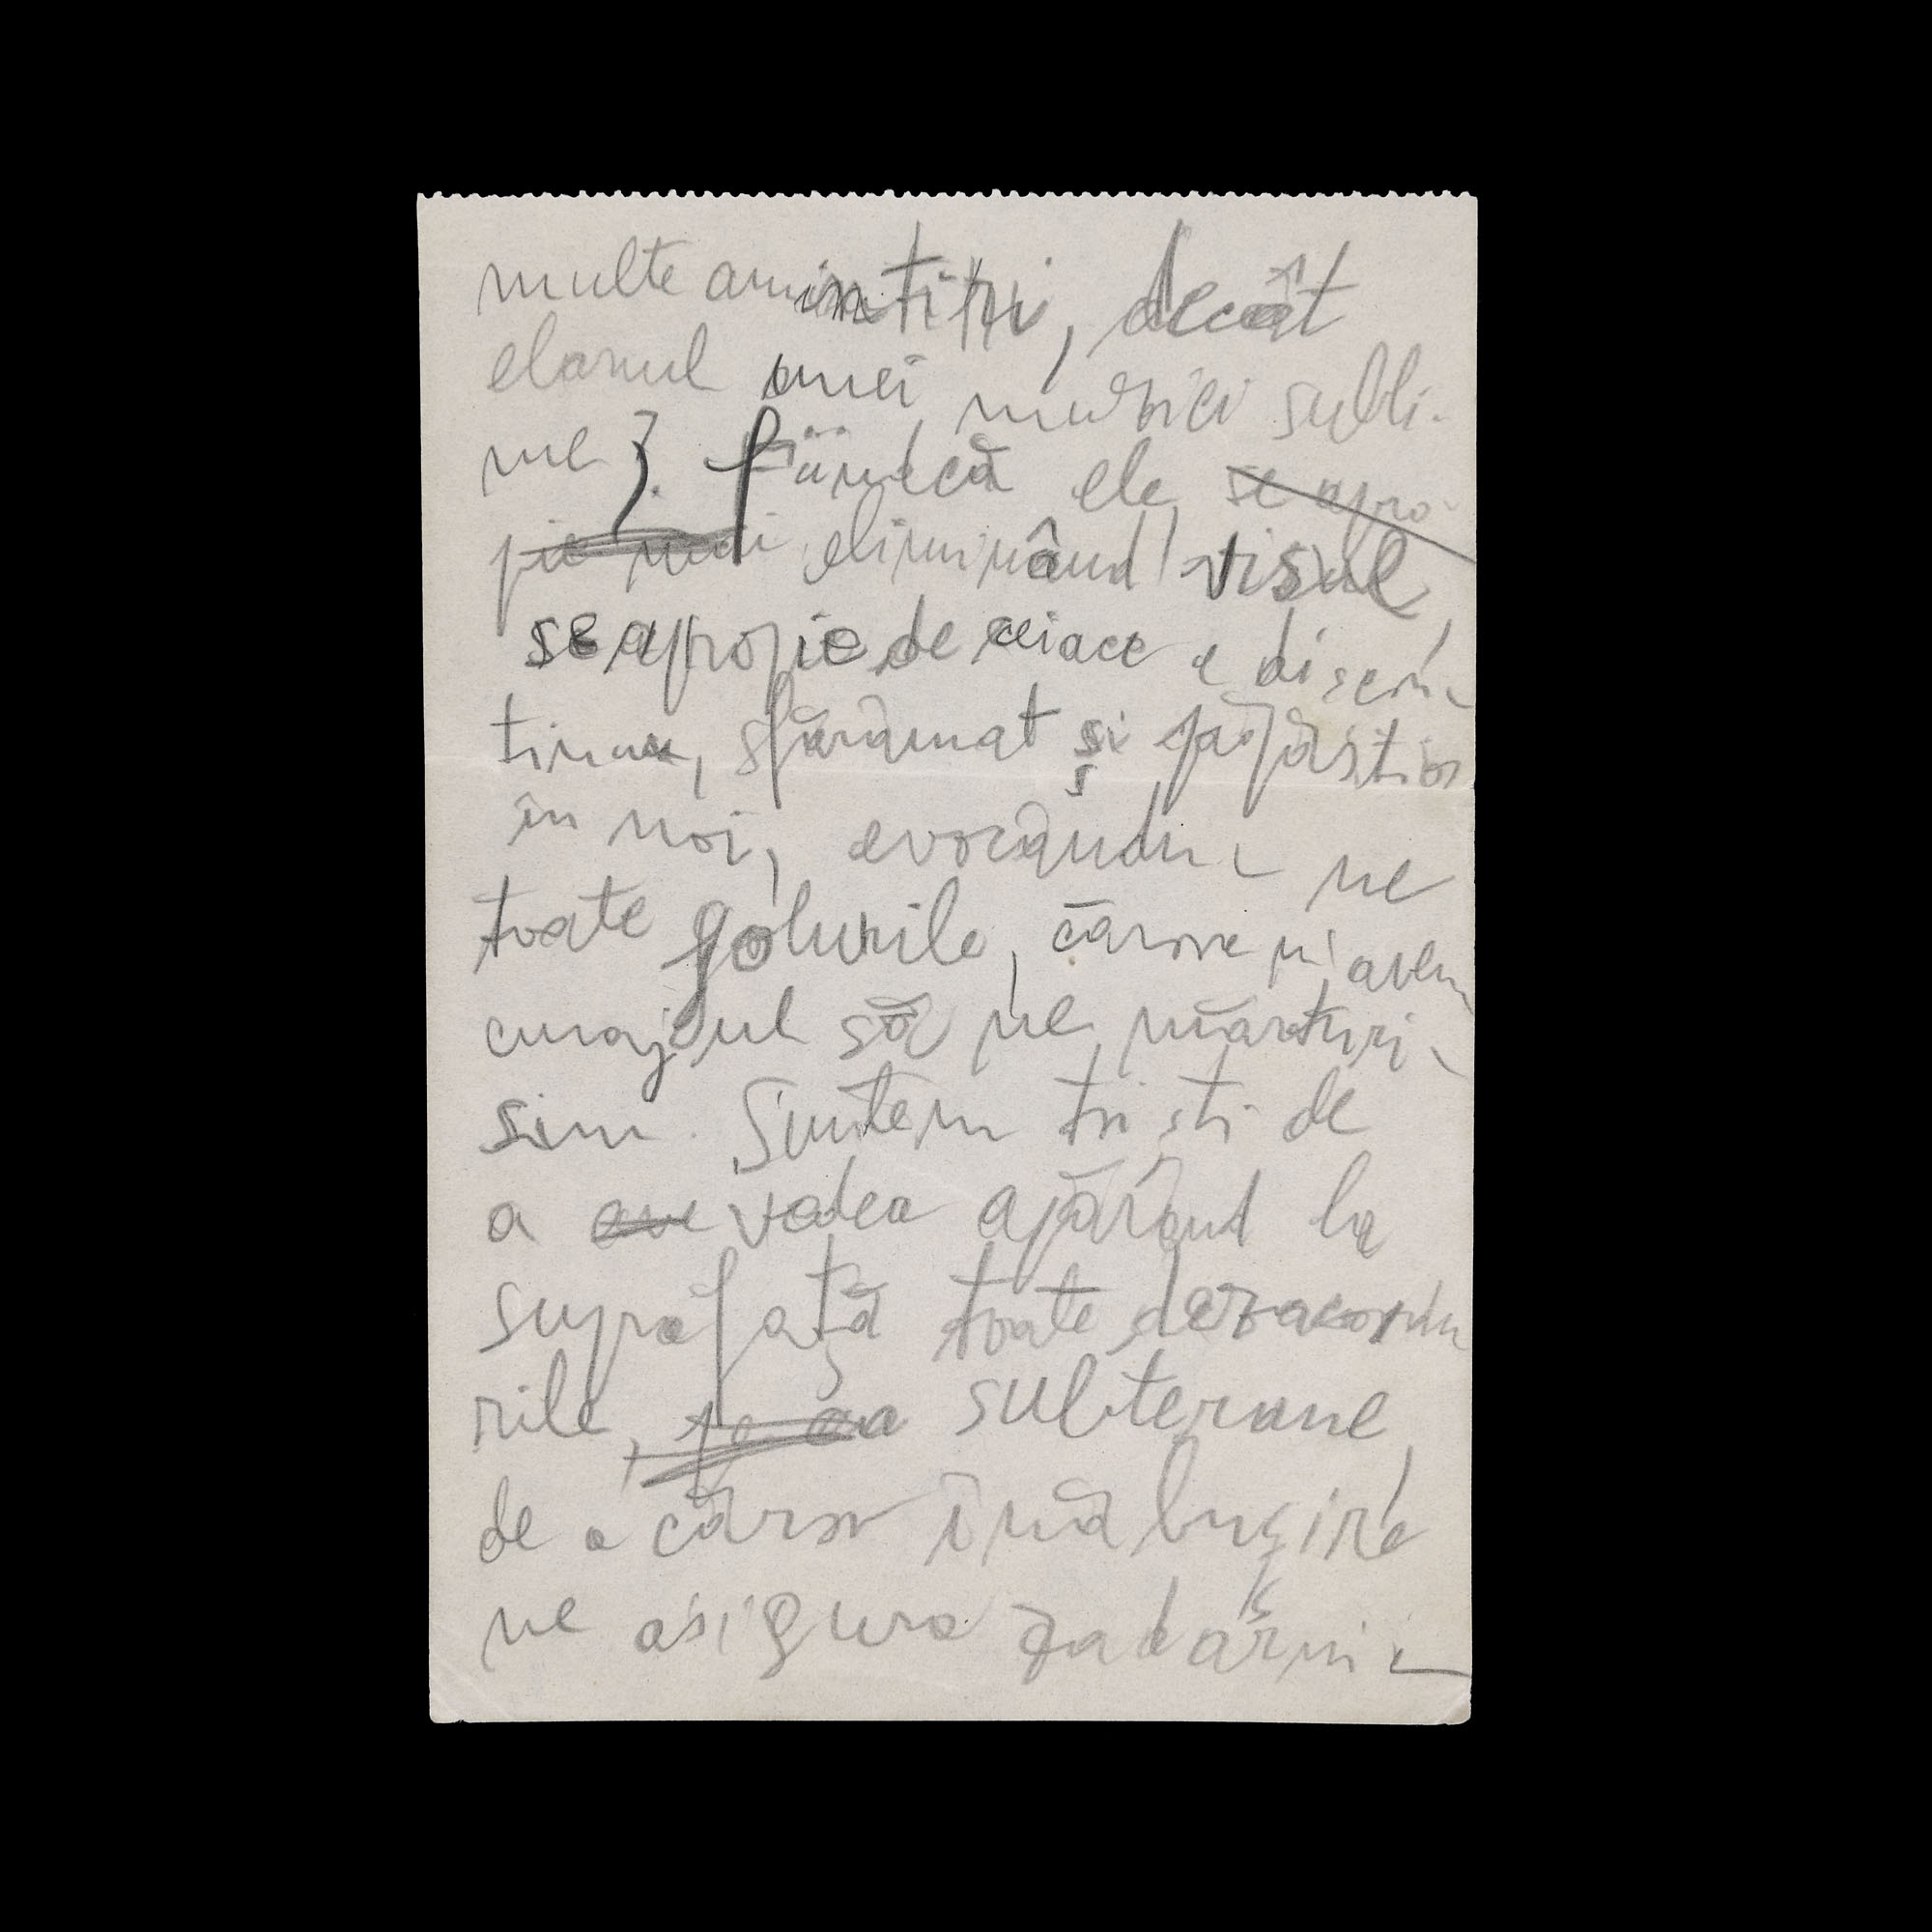 multe amintiri, decât
elanul unei muzici subli-
me?. fiindcă ele se apro-
pie mai eliminând visul,
se apropie de ceiace e discon-
tinuu, sfărâmat și
în noi, evocându-ne
toate golurile, cărora n'avem
curajul să ne mărturi-
sim. Suntem triști de
a vedea apărând la
suprafață toate dezacordu-
rile, subterane,
de a căror înăbușire
ne asigura zadarni-